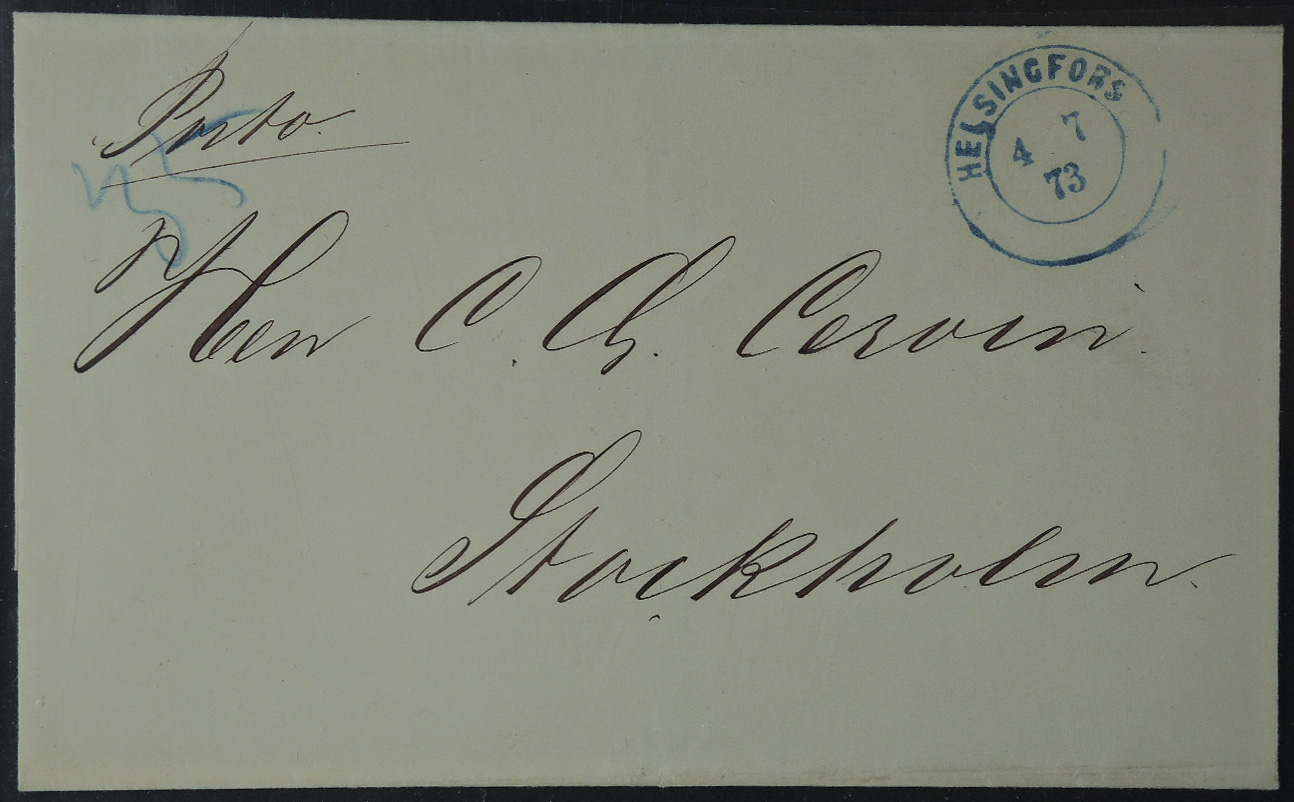 Porto
HELSINGFORS
4 7
73
Herr C. G. Cervin.
Stockholm.